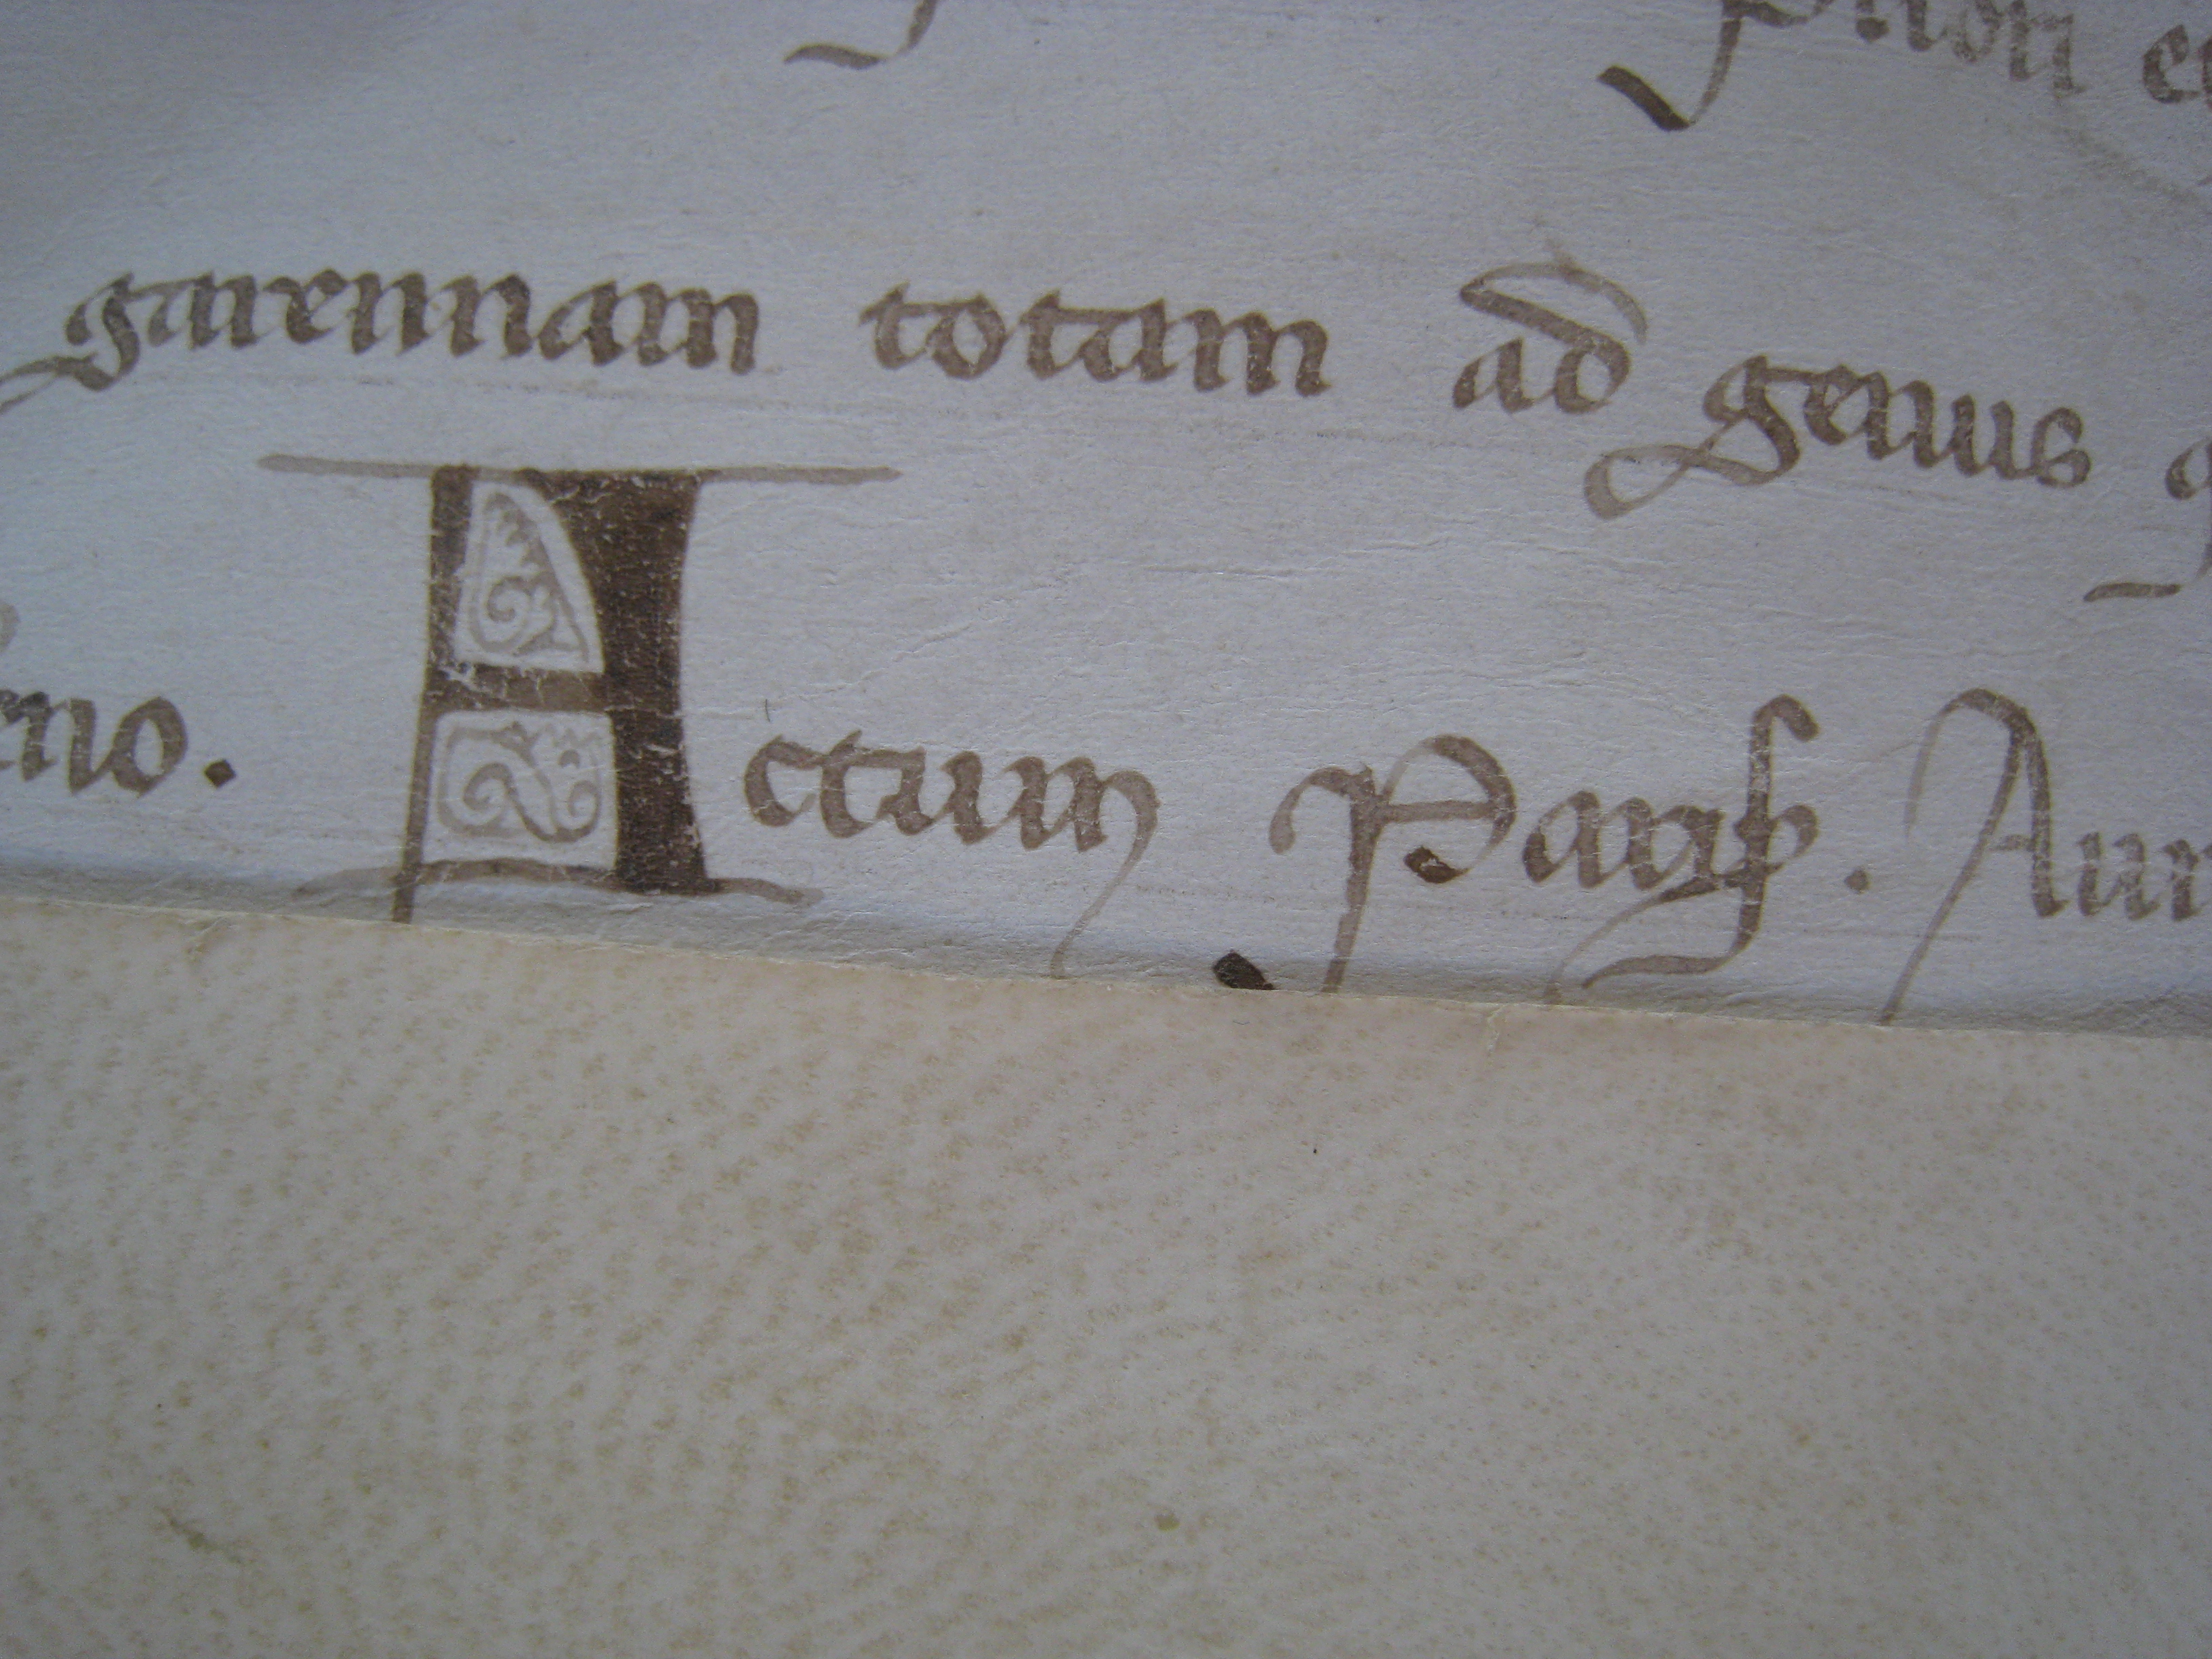 garennam totam ad genus
eno. Actum Paris. Ann